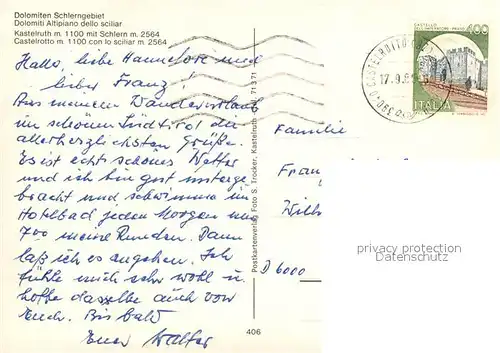 Dolomiten Schlerngebiet
Dolomiti Altipiano dello sciliar
Kastelruth m. 1100 mit Schlern m. 2564
Castelrotto m. 1100 con lo sciliar m. 2564
Hallo, liebe Hannelore und
lieber Franz!
Aus meinem Wanderurlaub
im schönen Südtirol die
allerherzlichsten Grüße.
Es ist echt schönes Wetter
und ich bin gut unterge-
bracht und schwimme im
Hotelbad jeden Morgen um
700 meine Runden. Dann
laß ich es angehen. Ich
fühle mich sehr wohl u.
hoffe dasselbe auch von
Euch. Bis bald
Euer Walter
406
Postkartenverlag Foto S. Trocker, Kastelruth
71371
CASTELROTTO
17.9.8
400
ITALIA
Familie
Fran
Wilh
D 6000
privacy protection
Datenschutz